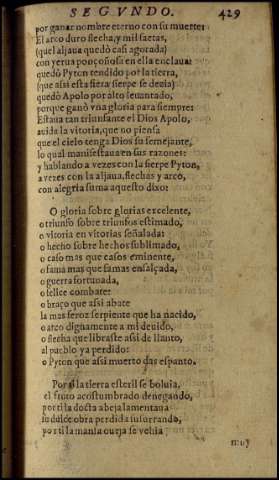 SEGVNDO. 429
por ganar nombre eterno con su muerte:
El arco duro flecha, y mil saetas,
(quel aljaua quedò casi agotada)
con yerua ponçoñosa en ella enclaua:
quedò Pyton tendido por la tierra,
(que assi esta fiera sierpe se dezia)
quedò Apolo por alto leuantado,
porque ganò vna gloria para siempre:
Estaua tan triunfante el Dios Apolo,
auida la vitoria, que no piensa
que el cielo tenga Dios su semejante,
lo qual manifestaua en sus razones
y hablando a vezes con la sierpe Pyton,
a vezes con la aljaua, flechas y arco,
con alegria suma aquesto dixo:
O gloria sobre glorias excelente,
o triunfo sobre triunfos estimado,
o vitoria en vitorias señalada:
o hecho sobre hechos sublimado,
o caso mas que casos eminente,
o fama mas que famas ensalçada,
o guerra fortunada,
o felice combate:
o braço que assi abate
la mas feroz serpiente que ha nacido,
o arco dignamente a mi deuido,
o flecha que libraste assi de llanto,
al pueblo ya perdido:
o Pyton que assi muerto das espanto.
Por ti la tierra esteril se boluia,
el fruto acostumbrado denegando,
por ti la docta abeja lamentaua
su dulce obra perdida susurrando,
por ti la mansa oueja se vehia